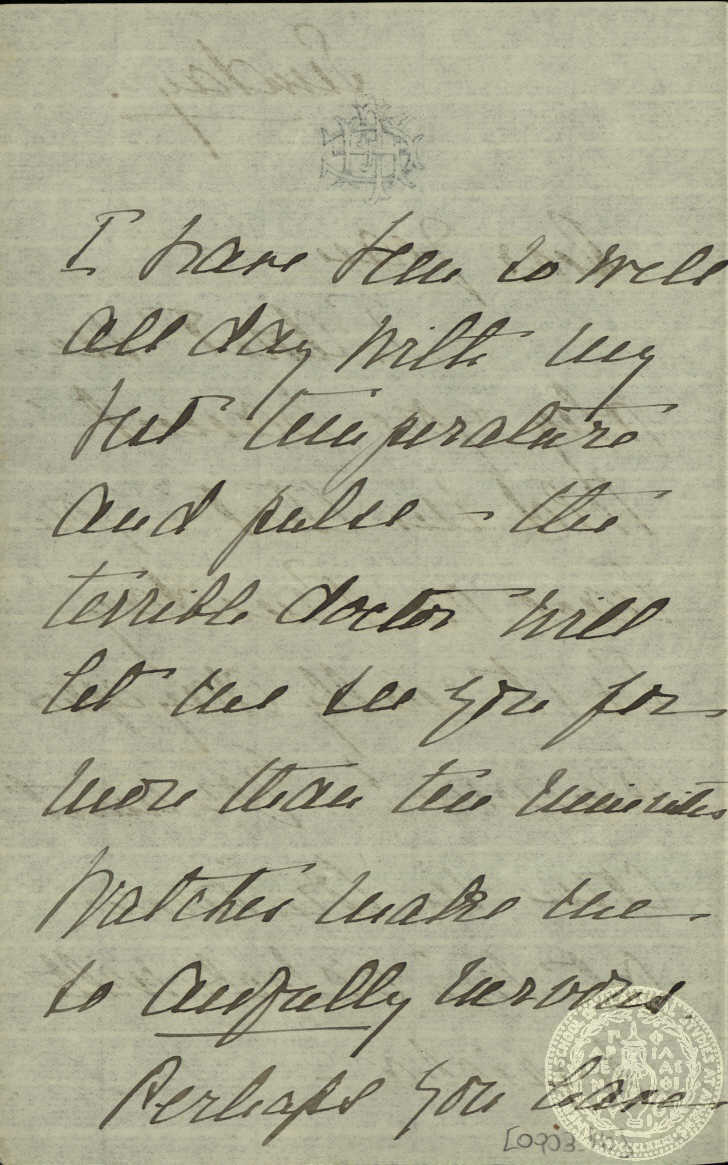 I have been so well
all day with my
but temperature
and pulse – the
terrible doctor will
let me see you for
more than ten minutes
Watches make me
so awfully nervous.
Perhaps you have